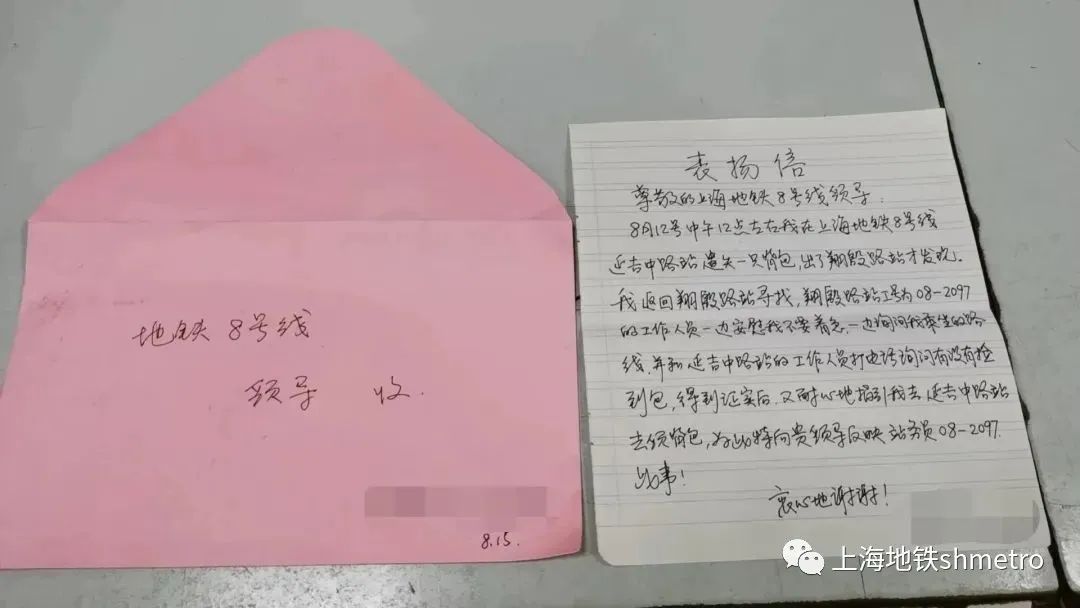 地铁8号线
领导 收
8.15.
表扬信
尊敬的上海地铁8号线领导
8月12号中午12点左右我在上海地铁8号线
延吉中路站遗失一只背包,出了翔殷路站才发现。
我返回翔殷路站寻找,翔殷路站工号为08-2097
的工作人员一边安慰我不要着急,一边询问我乘坐的路
线并和延吉中路站的工作人员打电话询问有没有捡
到包,得到证实后,又耐心地指引我去延吉中路站
去领背包,为此特向贵领导反映站务员08-2097.
此事!
衷心地谢谢!
上海地铁shmetro